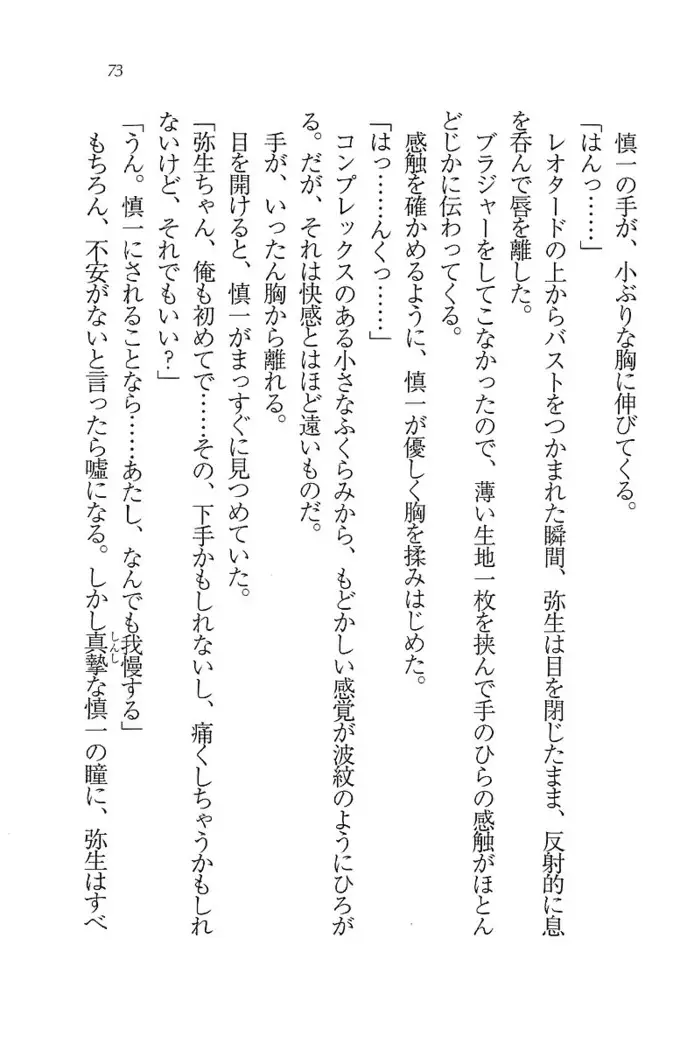 73
慎一の手が、小ぶりな胸に伸びてくる。
「はんっ……」
レオタードの上からバストをつかまれた瞬間、弥生は目を閉じたまま、反射的に息
を呑んで唇を離した。
ブラジャーをしてこなかったので、薄い生地一枚を挟んで手のひらの感触がほとん
どじかに伝わってくる。
感触を確かめるように、慎一が優しく胸を揉みはじめた。
「はっ……んくっ……」
コンプレックスのある小さなふくらみから、もどかしい感覚が波紋のようにひろが
る。だが、それは快感とはほど遠いものだ。
手が、いったん胸から離れる。
目を開けると、慎一がまっすぐに見つめていた。
「弥生ちゃん、俺も初めてで……その、下手かもしれないし、痛くしちゃうかもしれ
ないけど、それでもいい？」
「うん。慎一にされることなら……あたし、なんでも我慢する」
もちろん、不安がないと言ったら嘘になる。しかし真摯な慎一の瞳に、弥生はすべ
しんし